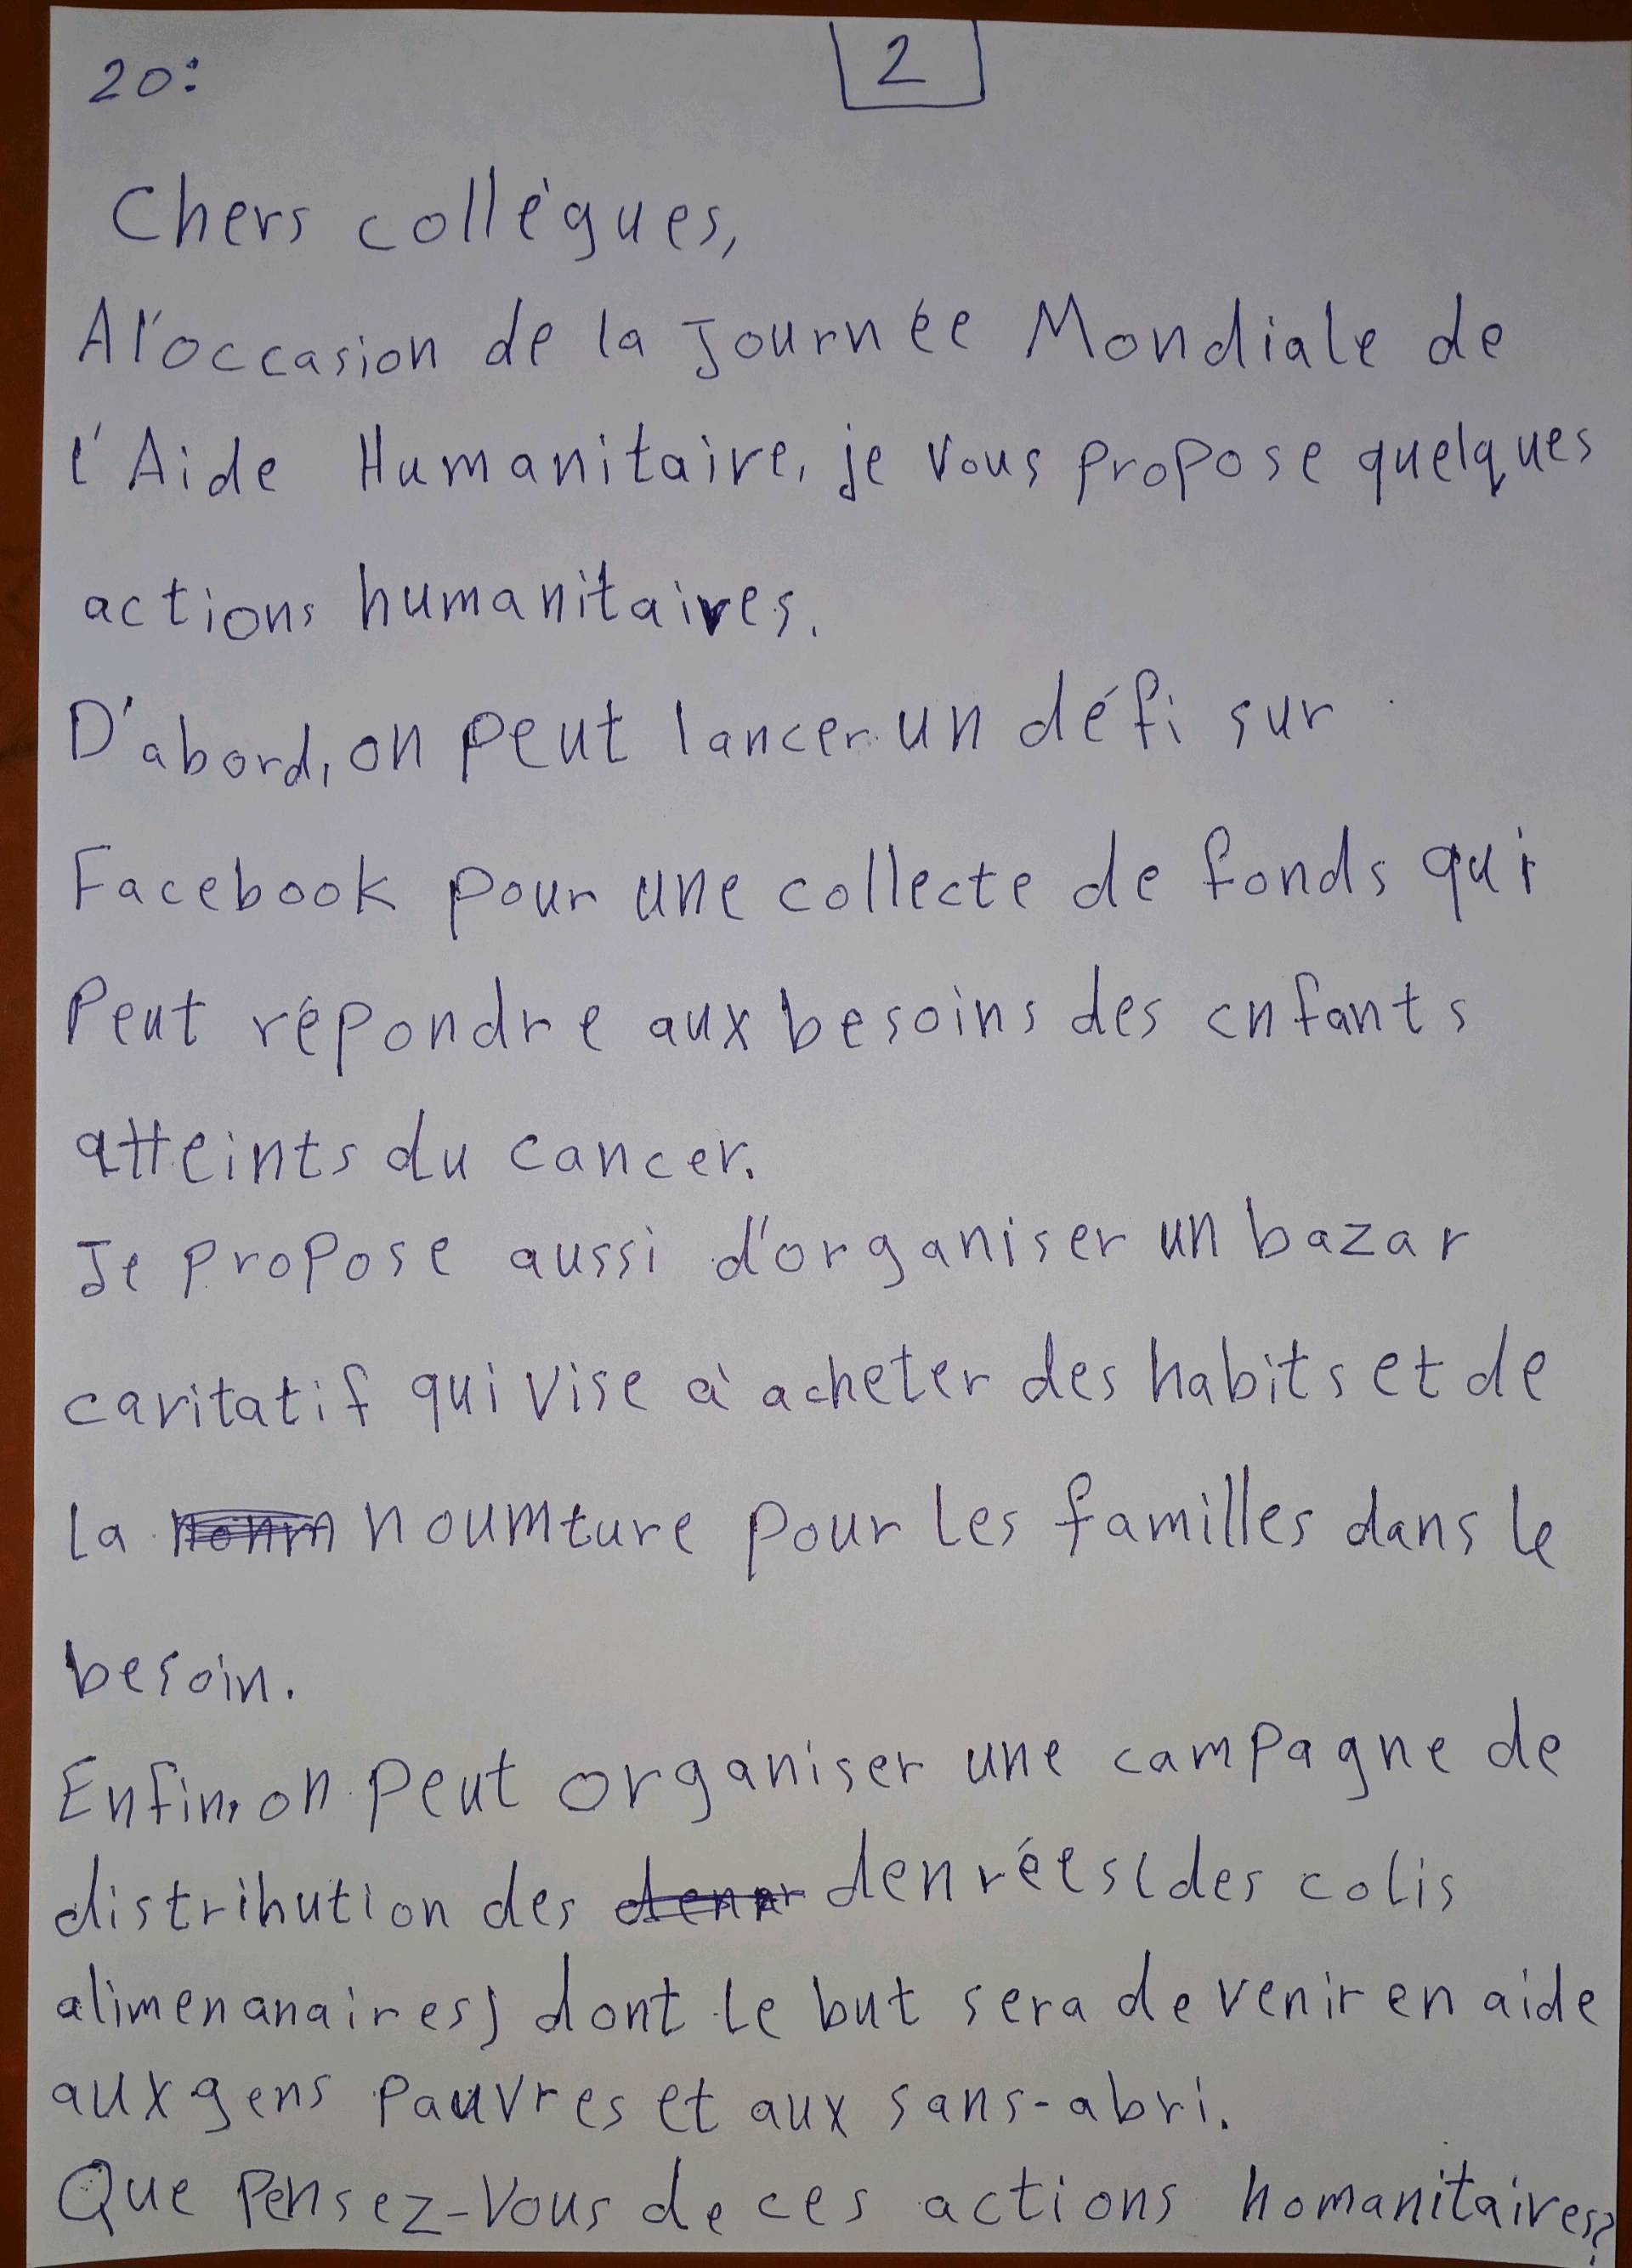 20:
2
Chers collègues,
A l'occasion de la Journée Mondiale de
l'Aide Humanitaire, je vous propose quelques
actions humanitaires.
D'abord, on peut lancer un défi sur
Facebook pour une collecte de fonds qui
Peut répondre aux besoins des enfants
atteints du cancer.
Je propose aussi d'organiser un bazar
caritatif qui vise à acheter des habits et de
la noumture pour les familles dans le
besoin.
Enfin, on peut organiser une campagne de
distribution des denrées (des colis
alimenanaires) dont le but sera de venir en aide
aux gens pauvres et aux sans-abri.
Que pensez-vous de ces actions homanitaires?